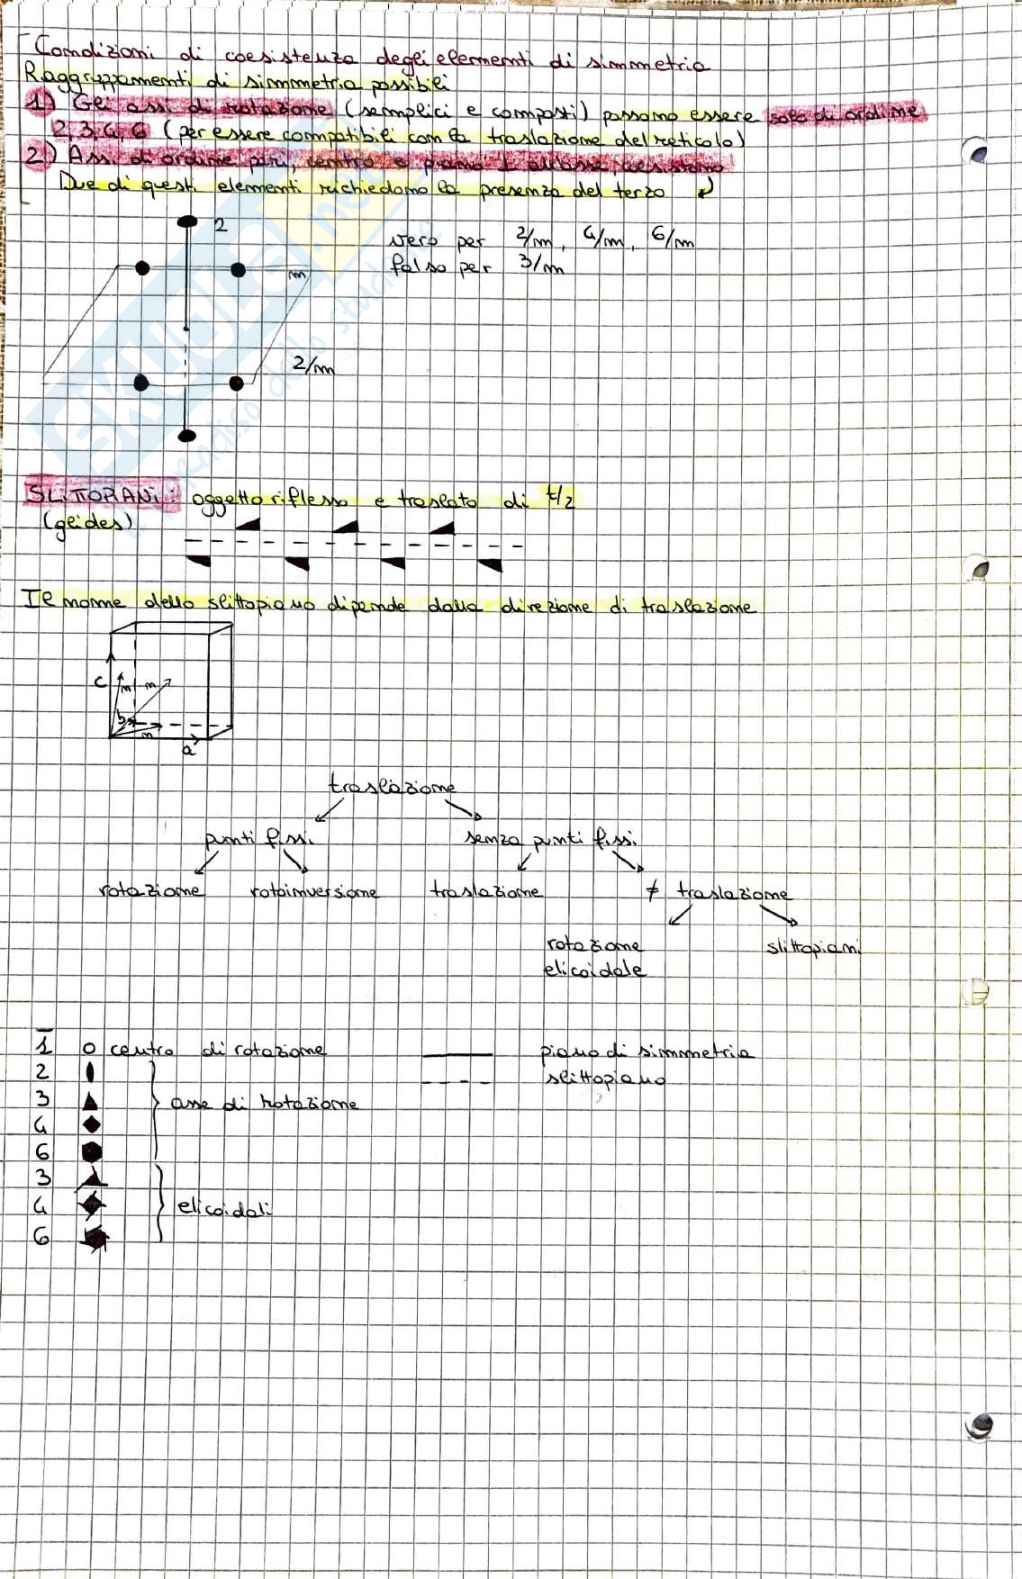 Condizioni di coesistenza degli elementi di simmetria
Raggruppamenti di simmetria possibili
1) Gli assi di rotazione (semplici e composti) possono essere solo di ordine
2, 3, 4, 6 (per essere compatibili con la traslazione del reticolo)
2) Assi di ordine pari, centro e piano ⊥ all'asse coesistono
Due di questi elementi richiedono la presenza del terzo
2
vero per 2/m, 4/m, 6/m
falso per 3/m
m
2/m
SLITTOPIANI: oggetto riflesso e traslato di t/2
(glides)
Il nome dello slittopiano dipende dalla direzione di traslazione
c n n
b
n
a
traslazione
punti fissi senza punti fissi
rotazione rotoinversione traslazione ≠ traslazione
rotazione slittopiani
elicoidale
1̅ centro di rotazione piano di simmetria
2 slittopiano
3 asse di rotazione
4
6
3
4 elicoidali
6